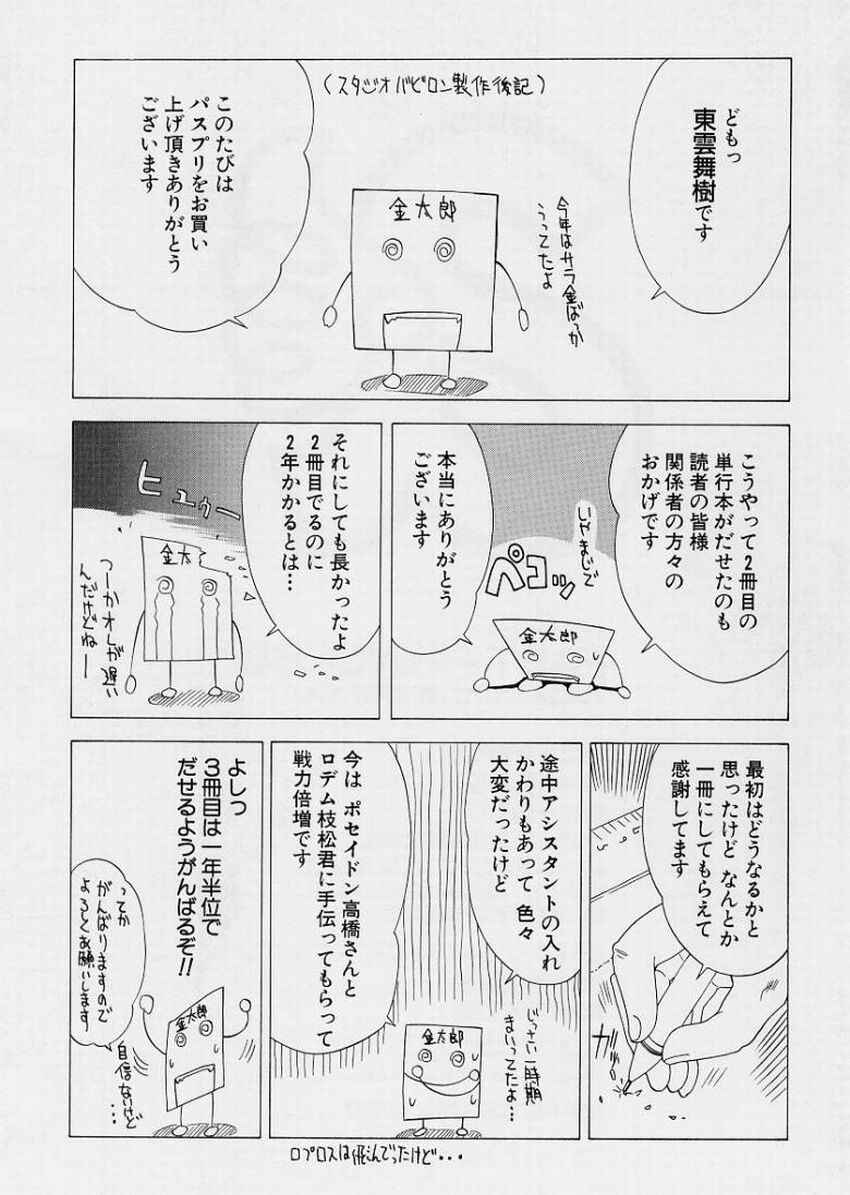 (スタジオバビロン製作後記)
どもっ
東雲舞樹です
今年はサラ金ばっか
うってたよ
金太郎
このたびは
パスプリをお買い
上げ頂きありがとう
ございます
こうやって2冊目の
単行本がだせたのも
読者の皆様
関係者の方々の
おかげです
いやまじで
ペコッ
金太郎
本当にありがとう
ございます
それにしても長かったよ
2冊目でるのに
2年かかるとは…
ヒュゥー
金太
つーかオレが遅い
んだけどねー
最初はどうなるかと
思ったけど なんとか
一冊にしてもらえて
感謝してます
ガッ
途中アシスタントの入れ
かわりもあって 色々
大変だったけど
じっさい一時期
まいってたよ…
金太郎
今は ポセイドン高橋さんと
ロデム枝松君に手伝ってもらって
戦力倍増です
よしっ
3冊目は一年半位で
だせるようがんばるぞ!!
金太郎
自信ないけど
…
ってか
がんばりますので
よろしくお願いします
ロプロスは飛んでったけど・・・